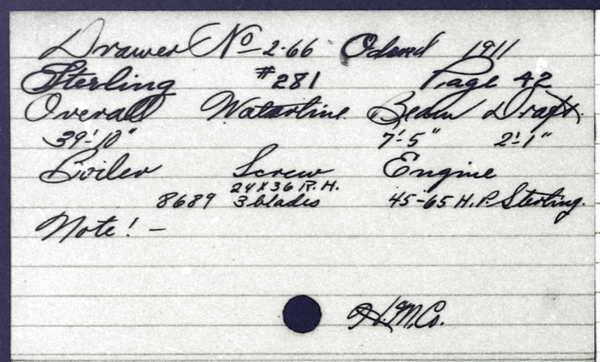 Drawer No 2-66 1911
Sterling #281 Page 42
Overall Waterline Beam Draft
39'-10" 7'-5" 2'-1"
Boiler Screw Engine
24 x 36 R.H.
8689 3 blades 45-65 H.P. Sterling.
Note! -
H.M.Co.